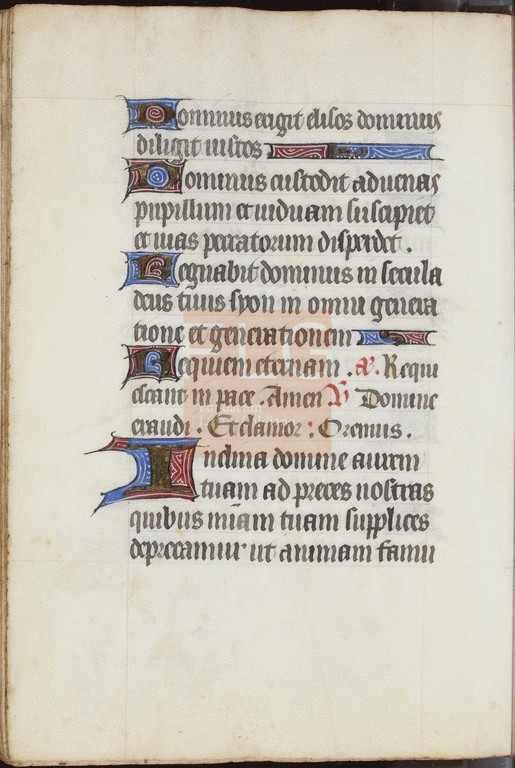 Dominus erigit elisos dominus
diligit iustos
Dominus custodit aduenas
pupillum et uiduam suscipiet
et uias peccatorum disperdet .
Regnabit dominus in secula
deus tuus syon in omni genera
tione et generationem
Requiem eternam . Requi
escant in pace . Amen Domine
exaudi . Et clamor : Oremus .
Inclina domine aurem
tuam ad preces nostras
quibus miãm tuam supplices
deprecamur ut animam famu